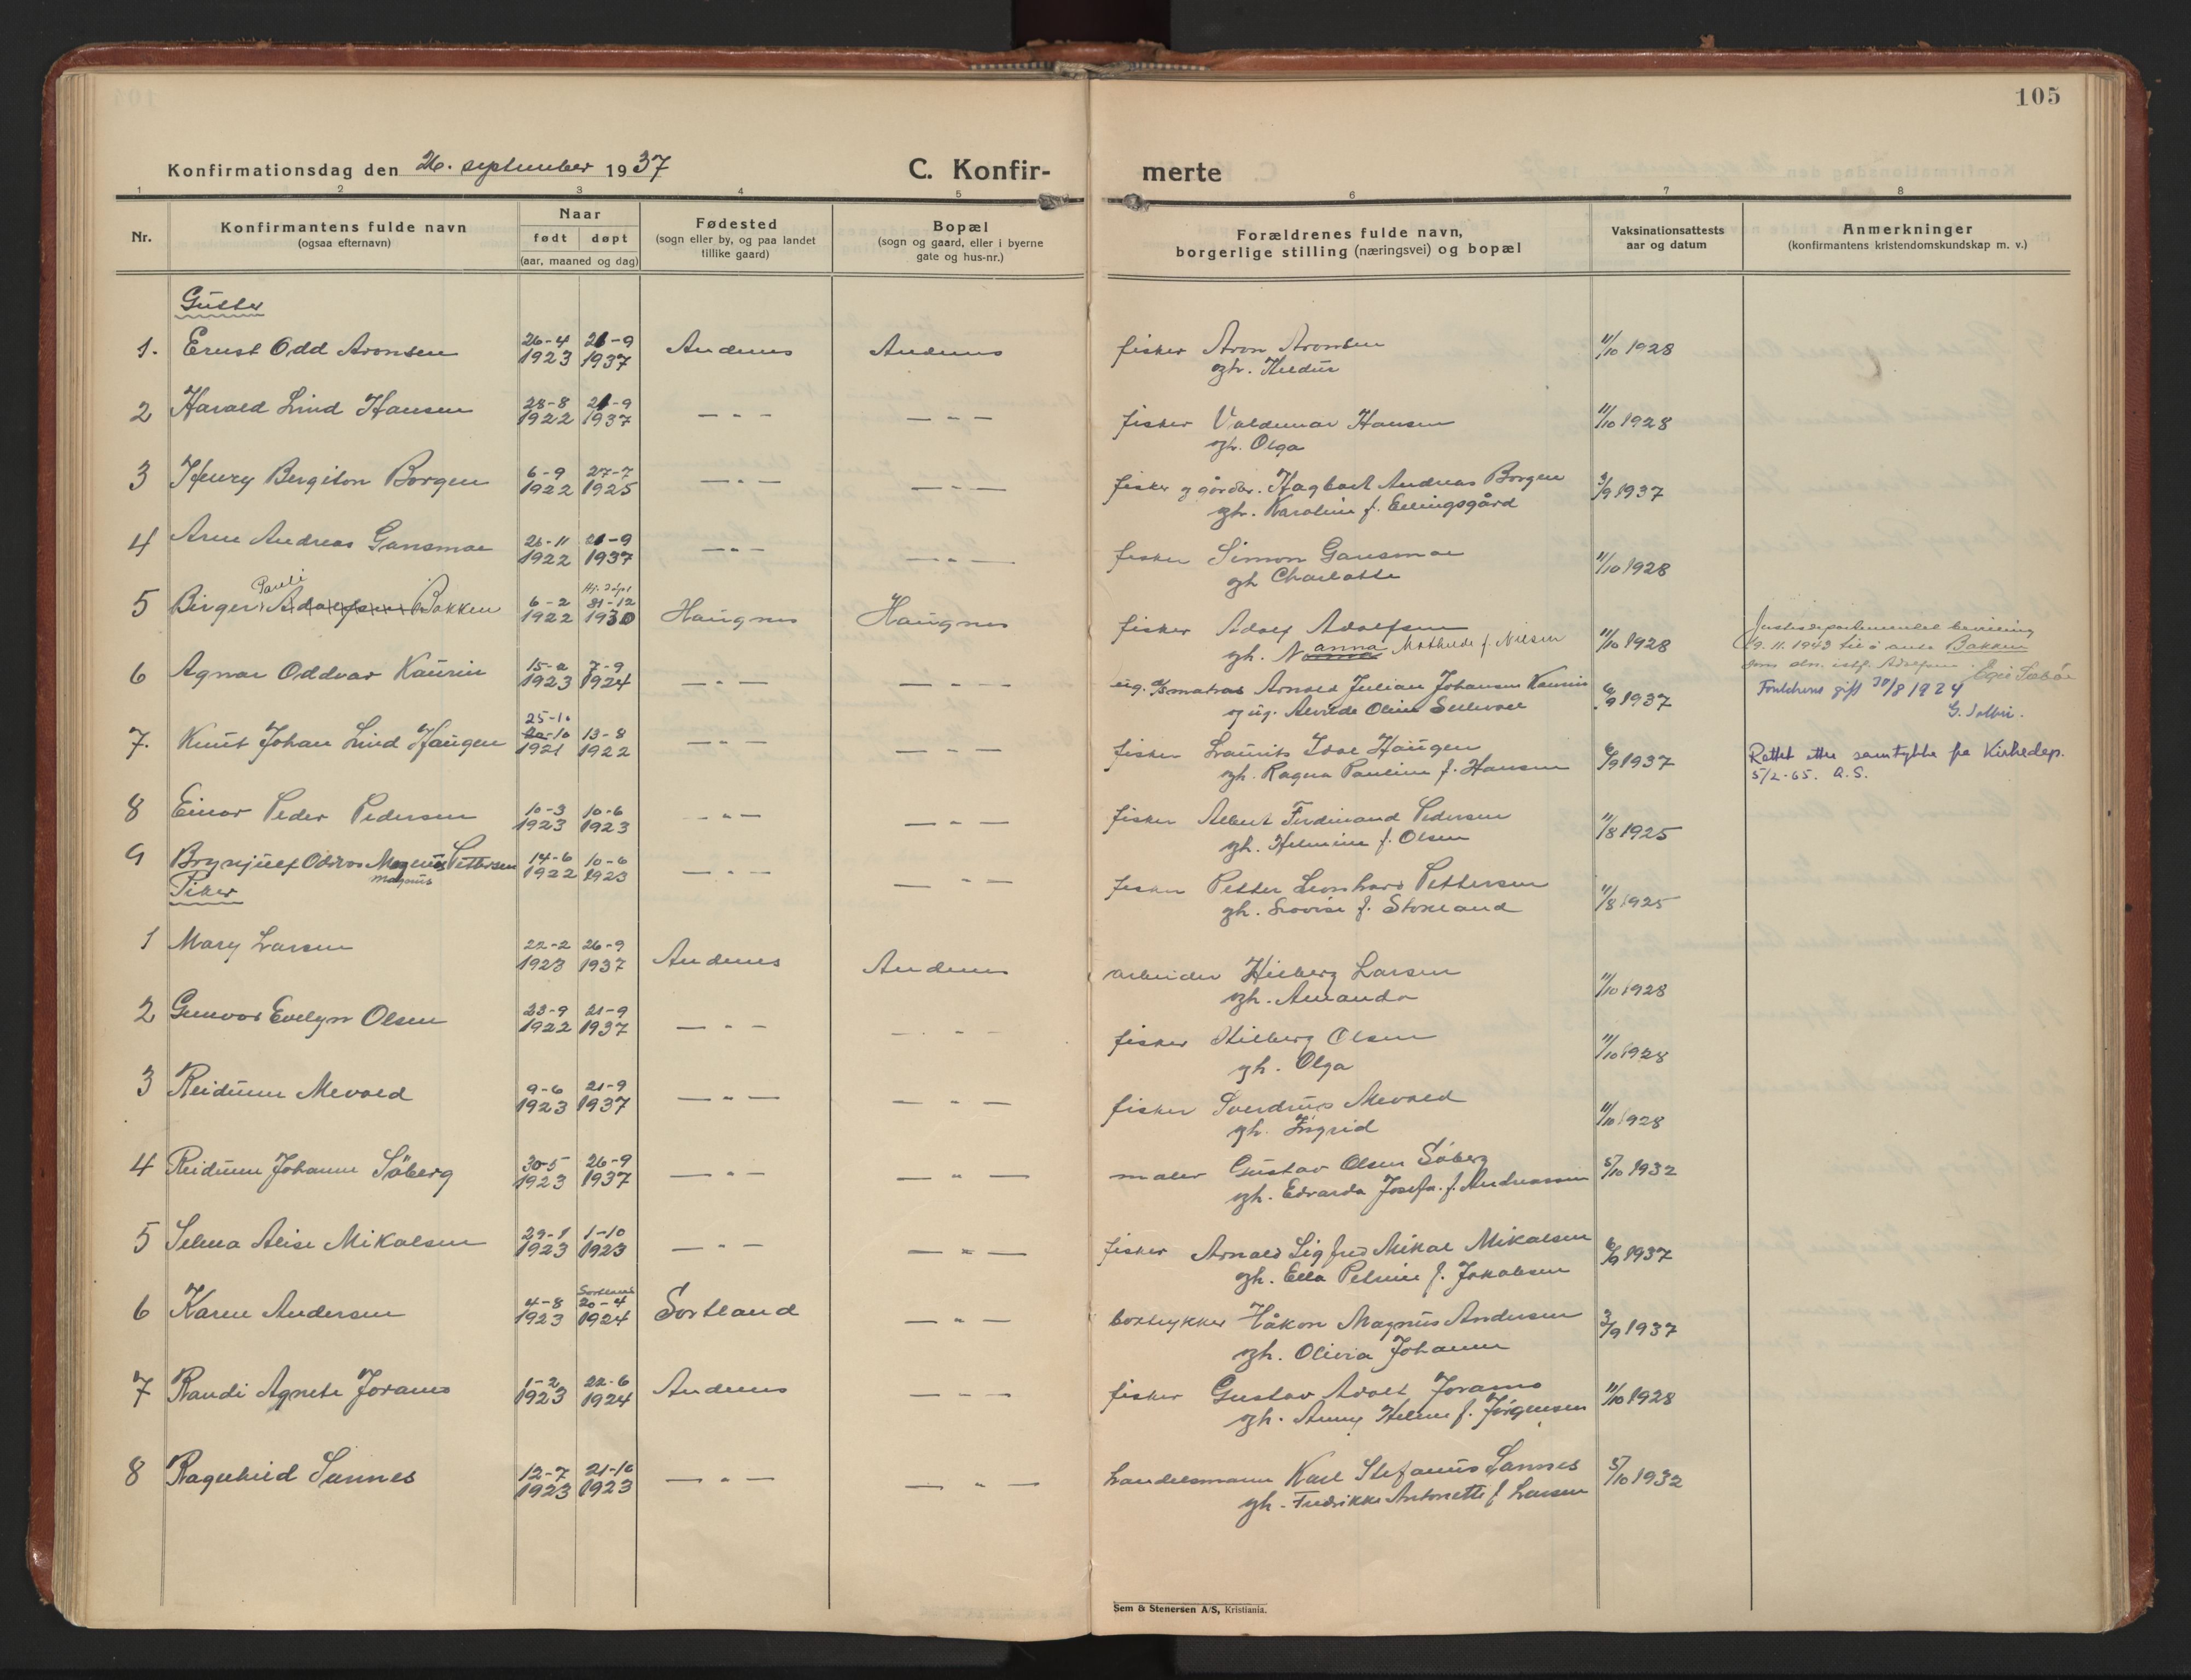 105
Konfirmationsdag den 26. september 1937
C. Konfir-
merte
1 2 3 4 5 6 7 8
Nr.
Konfirmantens fulde navn
(ogsaa efternavn)
Naar
født døpt
(aar, maaned og dag)
Fødested
(sogn eller by, og paa landet
tillike gaard)
Bopæl
(sogn og gaard, eller i byerne
gate og hus-nr.)
Forældrenes fulde navn,
borgerlige stilling (næringsvei) og bopæl
Vaksinationsattests
aar og datum
Anmerkninger
(konfirmantens kristendomskundskap m. v.)
Gutter
1. Ernst Odd Aronsen 26-4 1923 21-9 1937 Andenes Andenes fisker Aron Aronsen 11/10 1928
gh. Hildur
2 Harald Lind Hansen 28-8 1922 21-9 1937 — " — — " — fisker Valdemar Hansen 11/10 1928
gh. Olga
3 Henry Bergiton Borgen 6-9 1922 27-7 1925 — " — — " — fisker og gårdbr. Hagbart Andreas Borgen 3/9 1937
gh. Karoline f. Ellingsgård
4 Arne Andreas Gansmoe 26-11 1922 21-9 1937 — " — — " — fisker Simon Gansmoe 11/10 1928
gh Charlotte
Pauli
5 Birger Adolfsen Bakken 6-2 1922 Hj. døpt 31-12 1930 Haugnes Haugnes fisker Adolf Adolfsen 11/10 1928
gh. Nanna Mathilde f. Nilsen
Justisdepartementet bevilling
19.11.1943 til å anta Bakken
som sln. istf. Adolfsen.
6 Agnar Oddvar Kaurin 15-2 1923 7-9 1924 — " — — " — ug. matros Arnold Julian Johansen Kaurin 6/9 1937
og ug. Alvilde Oline Sellevoll
Foreldrene gift 30/8 1924
7. Knut Johan Lind Haugen 25-10 20-10 1921 13-8 1922 — " — — " — fisker Laurits Idar Haugen 6/9 1937
gh. Ragna Pauline f. Hansen
Rettet etter samtykke fra Kirkedep.
5/2-65. A.S.
8 Einar Peder Pedersen 10-3 1923 10-6 1923 — " — — " — fisker Albert Ferdinand Pedersen 11/8 1925
gh. Helmine f. Olsen
9 Brynjulf Oddvar Magnus Pettersen 14-6 1922 10-6 1923 — " — — " — fisker Petter Leonhard Pettersen 11/8 1925
magnus
gh. Lovise f. Stokland
Piker
1 Mary Larsen 22-2 1923 26-9 1937 Andenes Andenes arbeider Hilberg Larsen 11/10 1928
gh. Amanda
2 Gunvor Evelyn Olsen 23-9 1922 21-9 1937 — " — — " — fisker Hilberg Olsen 11/10 1928
gh. Olga
3 Reidunn Mevold 9-6 1923 21-9 1937 — " — — " — fisker Sverdrup Mevold 11/10 1928
gh. Ingrid
4 Reidunn Johanne Söberg 30-5 1923 26-9 1937 — " — — " — maler Gustav Olsen Söberg 5/10 1932
gh. Edvarda Josefa f. Andreassen
5 Selma Alise Mikalsen 29-1 1923 1-10 1923 — " — — " — fisker Arnold Sigfred Mikal Mikalsen 6/9 1937
gh. Ella Petrine f. Jakobsen
6 Karen Andersen 4-8 1923 Sortland 20-4 1924 Sortland — " — boktrykker Håkon Magnus Andersen 3/9 1937
gh. Olivia Johanne
7 Randi Agnete Joramo 1-2 1923 22-6 1924 Andenes — " — fisker Gustav Adolf Joramo 11/10 1928
gh. Anny Helene f. Jørgensen
8 Ragnhild Sannes 12-7 1923 21-10 1923 — " — — " — handelsmann Karl Stefanus Sannes 5/10 1932
gh. Fredrikke Antonette f Larsen
Sem & Stenersen A/S, Kristiania.